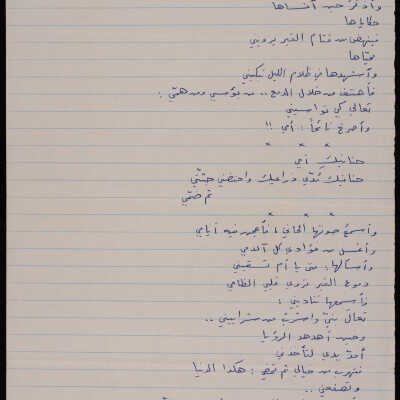 وأذكرُ حبّ أنساها
حكاياها
فينهض من قتام القبر يرويني
محيّاها
وأستشهدها في ظلام الليل تبكيني
فأهتف من خلال الدمع .. من بؤسي ومن همّي :
تعالي كي تواسيني
وأصرخ نائحاً : أمي !!
× × ×
حنانيكِ أمي
حنانيك مُدّي ذراعيك واحضني جثّتي
ثم ضمّي
× × ×
وأسمعُ صوتها الحاني ، فأهجر فيه أيامي
وأغسل من فؤادي كل آلامي
وأسألها : متى يا أم تسقيني
دموع الفجر تروي قلبي الظامي
فأسمعها تناديني :
تعالَ بنيّ واشرب من شراييني ..
وحين أهدهد الرؤيا
أمدّ يدي لتأخذني
فتهرب من خيالي ثم تمضي : هكذا الدنيا
وتصفعني ..